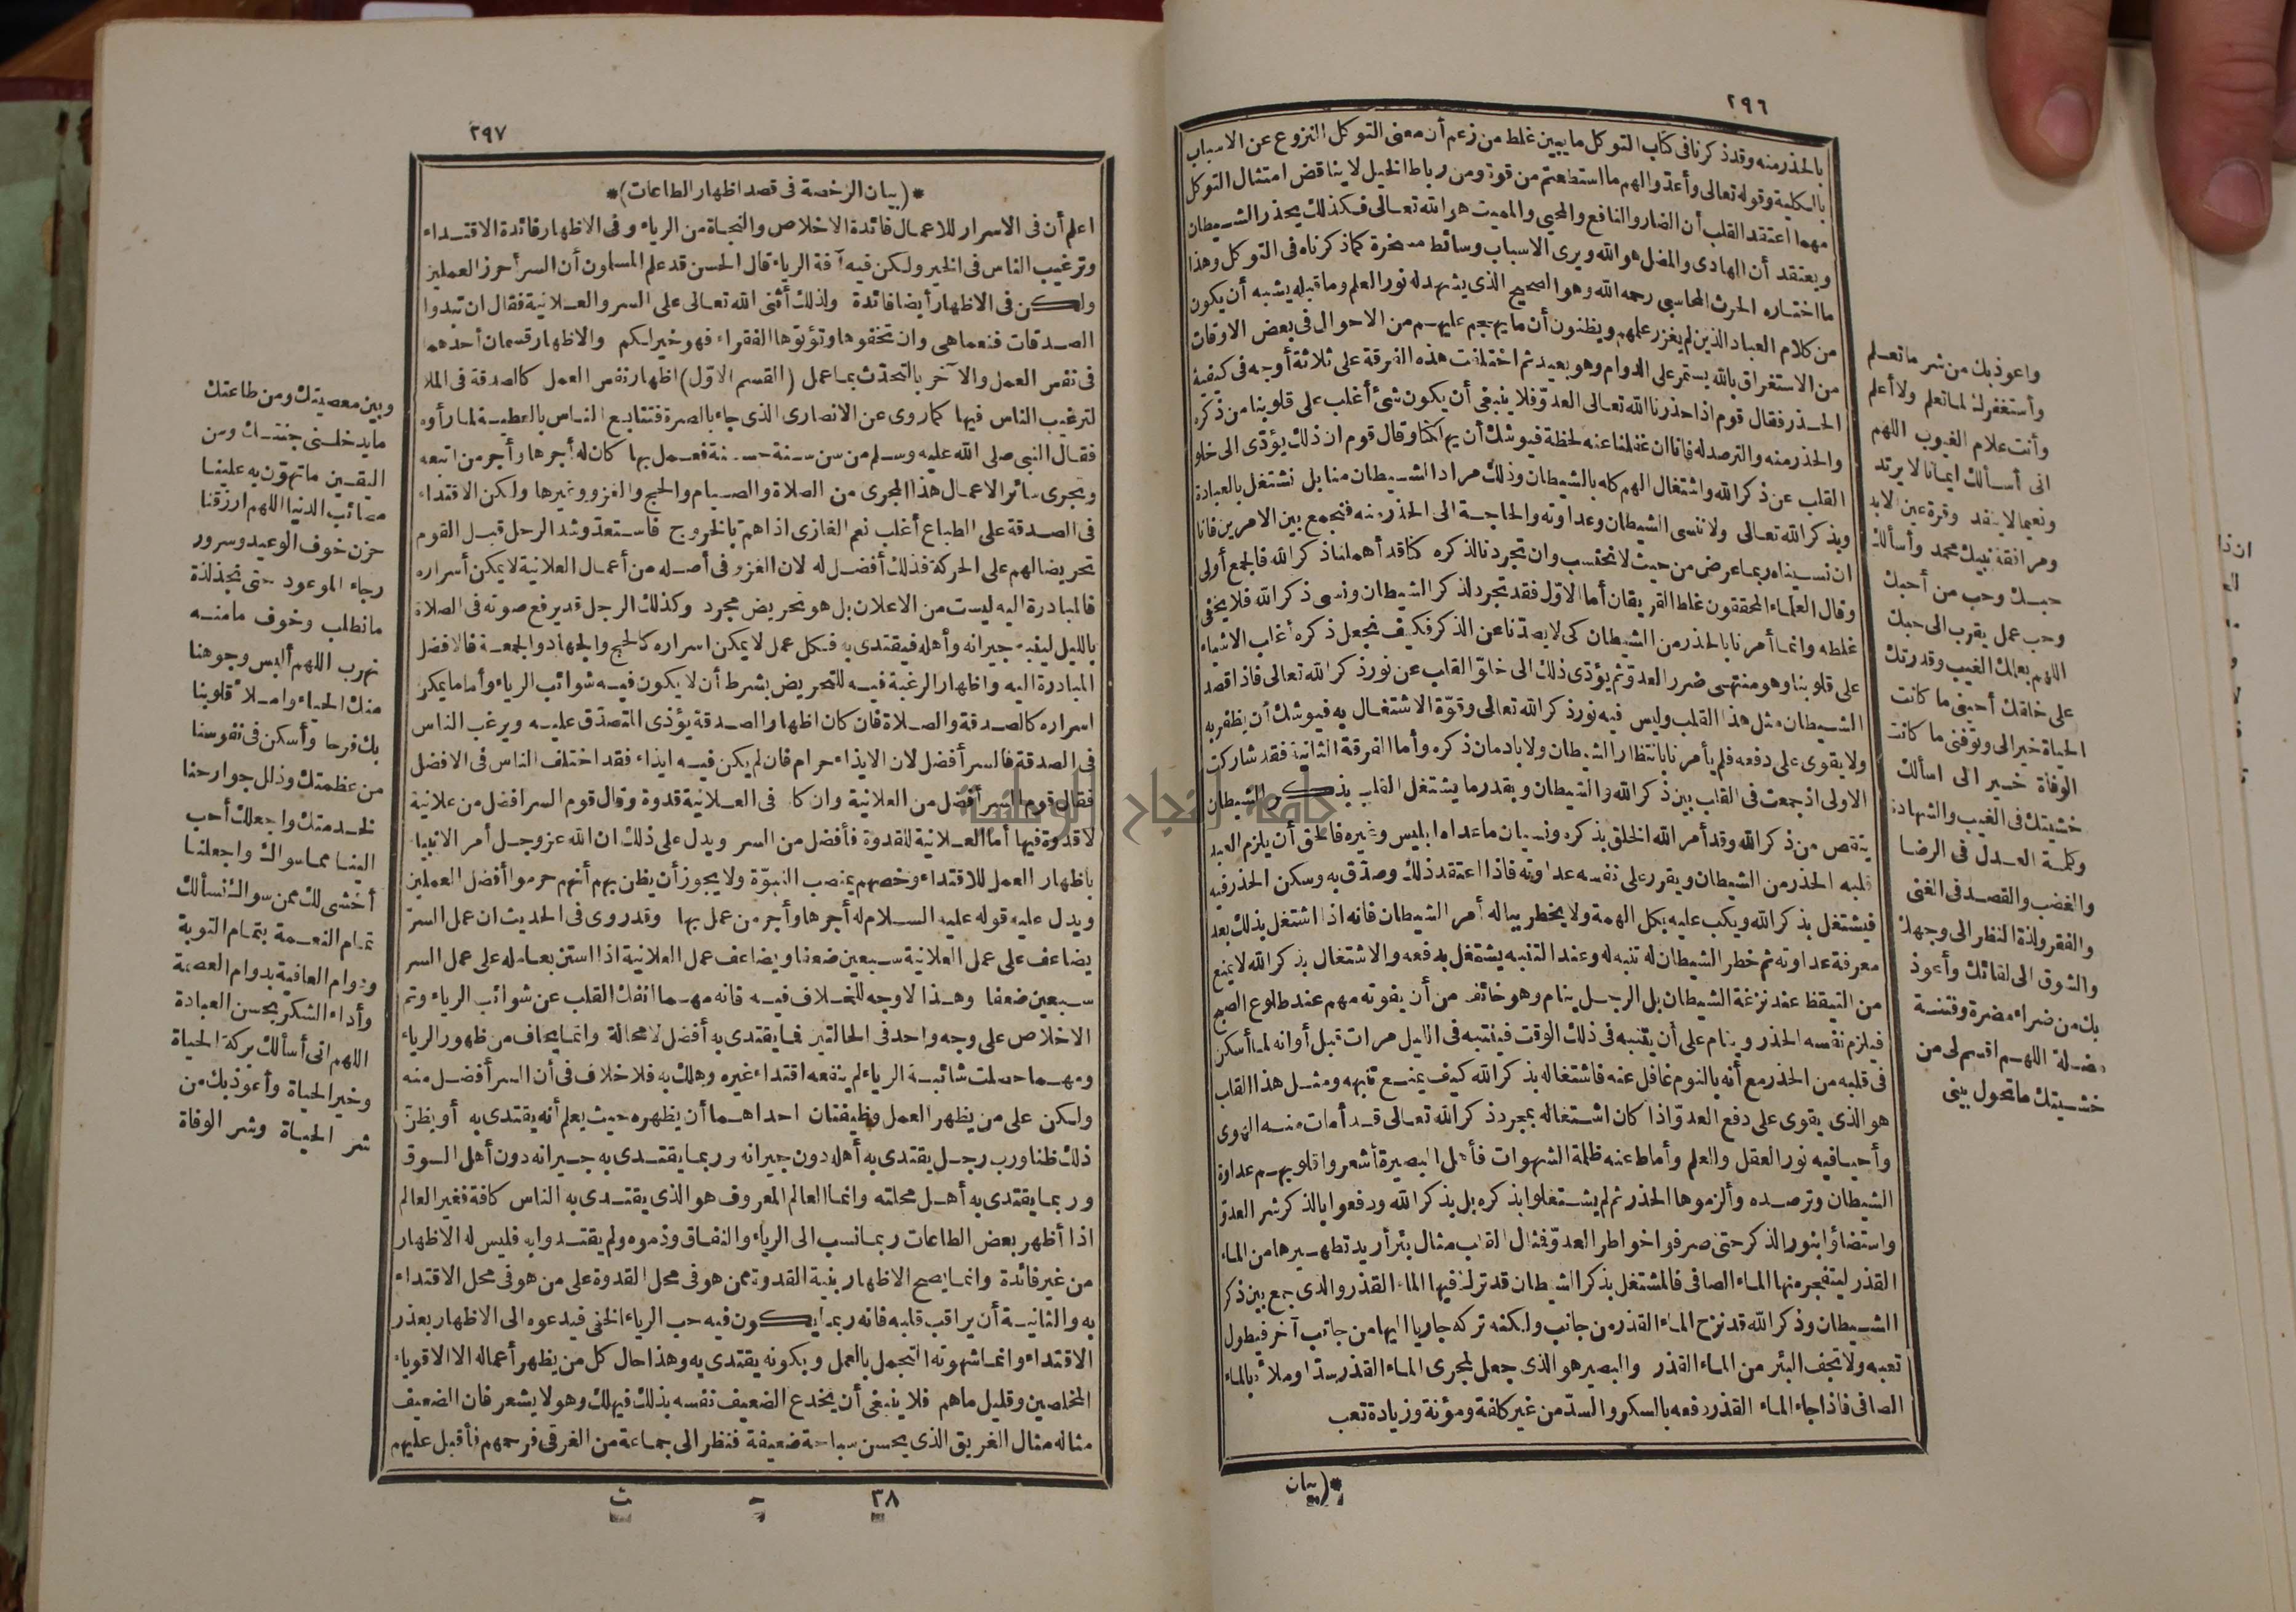 ٢٩٦
بالحذر منه وقد ذكرنا فى كتاب التوكل ما يبين غلط من زعم أن معنى التوكل النزوع عن الاسباب
بالكلية وقوله تعالى وأعدّوا لهم ما استطعتم من قوة ومن رباط الخيل لا يناقض امتثال التوكل
مهما اعتقد القلب أن الضار والنافع والمحيى والمميت هو الله تعالى فكذلك يحذر الشيطان
ويعتقد أن الهادى والمضل هو الله ويرى الاسباب وسائط مسخرة كما ذكرناه فى التوكل وهذا
ما اختاره الحرث المحاسبى رحمه الله وهو الصحيح الذى يشهد له نور العلم وما قبله يشبه أن يكون
من كلام العباد الذين لم يغزر علمهم ويظنون أن ما يهجم عليهم من الاحوال فى بعض الاوقات
من الاستغراق بالله يستمر على الدوام وهو بعيد ثم اختلفت هذه الفرقة على ثلاثة أوجه فى كيفية
الحذر فقال قوم اذا حذرنا الله تعالى العدوّ فلا ينبغى أن يكون شئ أغلب على قلوبنا من ذكره
والحذر منه والترصد له فانا ان غفلنا عنه لحظة فيوشك أن يهلكنا وقال قوم ان ذلك يؤدّى الى خلو
القلب عن ذكر الله واشتغال الهم كله بالشيطان وذلك مراد الشيطان منا بل نشتغل بالعبادة
وبذكر الله تعالى ولا ننسى الشيطان وعداوته والحاجة الى الحذر منه فنجمع بين الامرين فانا
ان نسيناه ربما عرض من حيث لا نحتسب وان تجردنا لذكره كنا قد أهملنا ذكر الله فالجمع أولى
وقال العلماء المحققون غلط الفريقان أما الاوّل فقد تجرد لذكر الشيطان ونسى ذكر الله فلا يخفى
غلطه وانما أمرنا بالحذر من الشيطان كى لا يصدّنا عن الذكر فكيف نجعل ذكره أغلب الاشياء
على قلوبنا وهو منتهى ضرر العدوّ ثم يؤدّى ذلك الى خلوّ القلب عن نور ذكر الله تعالى فاذا قصد
الشيطان مثل هذا القلب وليس فيه نور ذكر الله تعالى وقوّة الاشتغال به فيوشك أن يظفر به
ولا يقوى على دفعه فلم يأمرنا بانتظار الشيطان ولا بادمان ذكره وأما الفرقة الثانية فقد شاركت
الاولى اذ جمعت فى القلب بين ذكر الله والشيطان وبقدر ما يشتغل القلب بذكر الشيطان
ينقص من ذكر الله وقد أمر الله الخلق بذكره ونسيان ما عداه ابليس وغيره فالحق أن يلزم العبد
قلبه الحذر من الشيطان ويقرر على نفسه عداوته فاذا اعتقد ذلك وصدّق به وسكن الحذر فيه
فيشتغل بذكر الله ويكب عليه بكل الهمة ولا يخطر بباله أمر الشيطان فانه اذا اشتغل بذلك بعد
معرفة عداوته ثم خطر الشيطان له تنبه له وعند التنبه يشتغل بدفعه والاشتغال بذكر الله لا يمنع
من التيقظ عند نزغة الشيطان بل الرجل ينام وهو خائف من أن يفوته مهم عند طلوع الصبح
فيلزم نفسه الحذر وينام على أن يتنبه فى ذلك الوقت فيتنبه فى الليل مرات قبل أوانه لما أسكن
فى قلبه من الحذر مع أنه بالنوم غافل عنه فاشتغاله بذكر الله كيف يمنع تنبهه ومثل هذا القلب
هو الذى يقوى على دفع العدوّ اذا كان اشتغاله بمجرد ذكر الله تعالى قد أمات منه الهوى
وأحيا فيه نور العقل والعلم وأماط عنه ظلمة الشهوات فأهل البصيرة أشعروا قلوبهم عداوة
الشيطان وترصده وألزموها الحذر ثم لم يشتغلوا بذكره بل بذكر الله ودفعوا بالذكر شر العدوّ
واستضاؤا بنور الذكر حتى صرفوا خواطر العدوّ فمثال القلب مثال بئر أريد تطهيرها من الماء
القذر ليتفجر منها الماء الصافى فالمشتغل بذكر الشيطان قد ترك فيها الماء القذر والذى جمع بين ذكر
الشيطان وذكر الله قد نزح الماء القذر من جانب ولكنه تركه جاريا اليها من جانب آخر فيطول
تعبه ولا تجف البئر من الماء القذر والبصير هو الذى جعل لمجرى الماء القذر سدّا وملأ بالماء
الصافى فاذا جاء الماء القذر دفعه بالسكر والسدّ من غير كلفة ومؤنة وزيادة تعب
*(بيان
واعوذ بك من شر ما تعلم
وأستغفرك لما تعلم ولا أعلم
وأنت علام الغيوب اللهم
انى أسألك ايمانا لا يرتد
ونعيما لا ينفد وقرة عين الابد
ومرافقة نبيك محمد وأسألك
حبك وحب من أحبك
وحب عمل يقرب الى حبك
اللهم بعلمك الغيب وقدرتك
على خلقك أحينى ما كانت
الحياة خيرا لى وتوفنى ما كانت
الوفاة خيرا لى اسألك
خشيتك فى الغيب والشهادة
وكلمة العدل فى الرضا
والغضب والقصد فى الغنى
والفقر ولذة النظر الى وجهك
والشوق الى لقائك وأعوذ
بك من ضراء مضرة وفتنة
مضلة اللهم اقسم لى من
خشيتك ما تحول بينى
٢٩٧
*(بيان الرخصة فى قصد اظهار الطاعات)*
اعلم أن فى الاسرار للاعمال فائدة الاخلاص والنجاة من الرياء وفى الاظهار فائدة الاقتداء
وترغيب الناس فى الخير ولكن فيه آفة الرياء قال الحسن قد علم المسلمون أن السر أحرز العملين
ولكن فى الاظهار أيضا فائدة ولذلك أثنى الله تعالى على السر والعلانية فقال ان تبدوا
الصدقات فنعما هى وان تخفوها وتؤتوها الفقراء فهو خير لكم والاظهار قسمان أحدهما
فى نفس العمل والآخر بالتحدّث بما عمل (القسم الاوّل) اظهار نفس العمل كالصدقة فى الملا
لترغيب الناس فيها كما روى عن الانصارى الذى جاء بالصرة فتتابع الناس بالعطية لما رأوه
فقال النبى صلى الله عليه وسلم من سن سنة حسنة فعمل بها كان له أجرها وأجر من اتبعه
وتجرى سائر الاعمال هذا المجرى من الصلاة والصيام والحج والغزو وغيرها ولكن الاقتداء
فى الصدقة على الطباع أغلب نعم الغازى اذا هم بالخروج فاستعدّ وشد الرحل قبل القوم
تحريضا لهم على الحركة فذلك أفضل له لان الغزو فى أصله من أعمال العلانية لا يمكن أسراره
فالمبادرة اليه ليست من الاعلان بل هو تحريض مجرد وكذلك الرجل قد يرفع صوته فى الصلاة
بالليل لينبه جيرانه وأهله فيقتدى به فكل عمل لا يمكن اسراره كالحج والجهاد والجمعة فالافضل
المبادرة اليه واظهار الرغبة فيه للتحريض بشرط أن لا يكون فيه شوائب الرياء وأما ما يمكن
اسراره كالصدقة والصلاة فان كان اظهار الصدقة يؤذى المتصدّق عليه ويرغب الناس
فى الصدقة فالسر أفضل لان الايذاء حرام فان لم يكن فيه ايذاء فقد اختلف الناس فى الافضل
فقال قوم السر أفضل من العلانية وان كان فى العلانية قدوة وقال قوم السر افضل من علانية
لا قدوة فيها أما العلانية للقدوة فأفضل من السر ويدل على ذلك ان الله عز وجل أمر الانبياء
باظهار العمل للاقتداء وخصهم بمنصب النبوّة ولا يجوز أن يظن بهم أنهم حرموا أفضل العملين
ويدل عليه قوله عليه السلام له أجرها وأجر من عمل بها وقد روى فى الحديث ان عمل السرّ
يضاعف على عمل العلانية سبعين ضعفا ويضاعف عمل العلانية اذا استن بعامله على عمل السر
سبعين ضعفا وهذا لا وجه للخلاف فيه فانه مهما انفك القلب عن شوائب الرياء وتم
الاخلاص على وجه واحد فى الحالتين فما يقتدى به أفضل لا محالة وانما يخاف من ظهور الرياء
ومهما حصلت شائبة الرياء لم ينفعه اقتداء غيره وهلك به فلا خلاف فى أن السر أفضل منه
ولكن على من يظهر العمل وظيفتان احداهما أن يظهره حيث يعلم أنه يقتدى به أو يظنّ
ذلك ظنا ورب رجل يقتدى به أهله دون جيرانه وربما يقتدى به جيرانه دون أهل السوق
وربما يقتدى به أهل محلته وانما العالم المعروف هو الذى يقتدى به الناس كافة فغير العالم
اذا أظهر بعض الطاعات ربما نسب الى الرياء والنفاق وذموه ولم يقتدوا به فليس له الاظهار
من غير فائدة وانما يصح الاظهار بنية القدوة ممن هو فى محل القدوة على من هو فى محل الاقتداء
به والثانية أن يراقب قلبه فانه ربما يكون فيه حب الرياء الخفى فيدعوه الى الاظهار بعذر
الاقتداء وانما شهوته التجمل بالعمل وبكونه يقتدى به وهذا حال كل من يظهر أعماله الا الاقوياء
المخلصين وقليل ما هم فلا ينبغى أن يخدع الضعيف نفسه بذلك فيهلك وهو لا يشعر فان الضعيف
مثاله مثال الغريق الذى يحسن سباحة ضعيفة فنظر الى جماعة من الغرقى فرحمهم فأقبل عليهم
٣٨
ث
وبين معصيتك ومن طاعتك
ما يدخلنى جنتك ومن
اليقين ما تهوّن به علينا
مصائب الدنيا اللهم ارزقنا
حزن خوف الوعيد وسرور
رجاء الموعود حتى نجد لذة
ما نطلب وخوف ما منه
نهرب اللهم ألبس وجوهنا
منك الحياء واملأ قلوبنا
بك فرحا وأسكن فى نفوسنا
من عظمتك وذلل جوارحنا
لخدمتك واجعلك أحب
الينا مما سواك واجعلنا
أخشى لك ممن سواك نسألك
تمام النعمة بتمام التوبة
ودوام العافية بدوام العصمة
وأداء الشكر بحسن العبادة
اللهم انى أسألك بركة الحياة
وخير الحياة وأعوذ بك من
شر الحياة وشر الوفاة
جامعة النجاح الوطنية